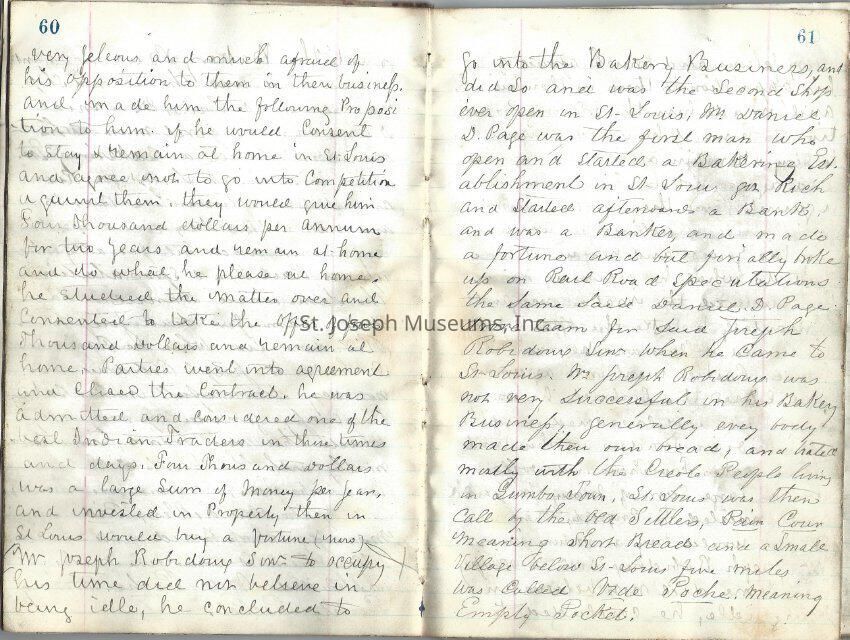 60
very Jelous and much afraid of
his opposition to them in their business.
and, made him the following Proposi
tion to him. if he would Consent
to stay & remain at home in St Louis
and agree not to go into Competition
against them. they would give him
Four thousand dollars per annum
for two years and remain at home
and do what, he please at home.
he studied the matter over and
Consented to take the offer of four
thousand dollars and remain at
home, Parties went into agreement
and Closed the Contract. he was
admitted and considered one of the
best Indian Traders in those times
and days. Four Thousand dollars
was a large Sum of Money per year,
and invested in Property then in
St Louis would buy a fortune (now)
Mr Joseph Robidoux Snr to occupy
his time did not believe in
being idle, he concluded to
61
go into the Bakery Business, and
did So and was the Second Shop
ever open in St- Louis, Mr Daniel
D. Page was the first man who
open and started a Bakering Est-
ablishment in St Louis got Rich
and started afterwards a Bank.
and was a Banker, and made
a fortune and but finally broke
up on Rail Road Speculations
the Same Said Daniel D. Page
team for Said Joseph
Robidoux Snr when he Came to
St-Louis. Mr Joseph Robidoux was
not very Successful in his Bakery
Business, generally every body
made their own bread, and
mostly with the Creole People living
in St. Louis was then
Call by the Old Settlers, Pain Cour
Meaning Short Bread and a Small
Village below St-Louis five miles
was Called Vide Poche, Meaning
Empty Pocket.
St. Joseph Museums, Inc.